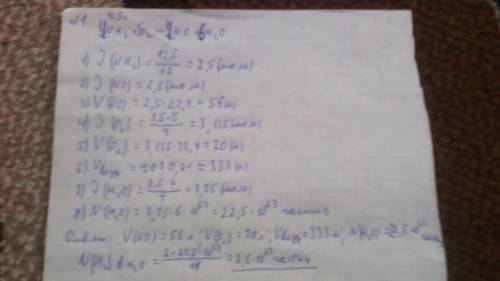 №1
42,5г
4NH₃+5O₂→4NO+6H₂O
1) ν(NH₃)=42,5/17=2,5(моль)
2) ν(NO)=2,5(моль)
3) V(NO)=2,5·22,4=56(л)
4) ν(O₂)=2,5·5/4=3,125(моль)
5) V(O₂)=3,125·22,4=70(л)
6) Vвозд=70:0,21=333(л)
7) ν(H₂O)=2,5·6/4=3,75(моль)
8) N(H₂O)=3,75·6·10²³=22,5·10²³ частиц
Ответ: V(NO)=56л; V(O₂)=70л; Vвозд=333л; N(H₂O)=22,5·10²³ частиц
N(H₂) в H₂O=2·22,5·10²³/18=2,5·10²³ частиц